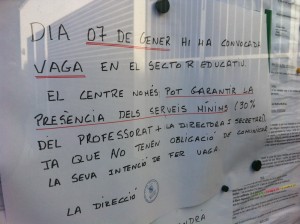 DIA 07 DE GENER HI HA CONVOCADA
VAGA EN EL SECTOR EDUCATIU.
EL CENTRE NOMÉS POT GARANTIR LA
PRESÈNCIA DELS SERVEIS MÍNIMS (30%
DEL PROFESSORAT + LA DIRECTORA I SECRETARI)
JA QUE NO TENEN OBLIGACIÓ DE COMUNICAR
LA SEVA INTENCIÓ DE FER VAGA.
LA DIRECCIÓ